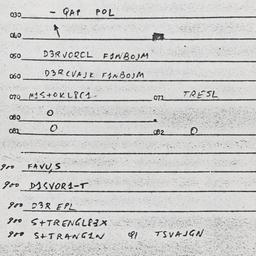 030 - GAP POL
040
050 D3RVORCL F1NBOJM
060 D3RCVAJK F1NBOJM
070 071 TRESL
080 O
082 O 082 O
900 FAVU,S
900 D1SVOR1-T
900 D3R EPL
900 S+TRENGL83X
900 S+TRANG1N 91 TSVAJGN